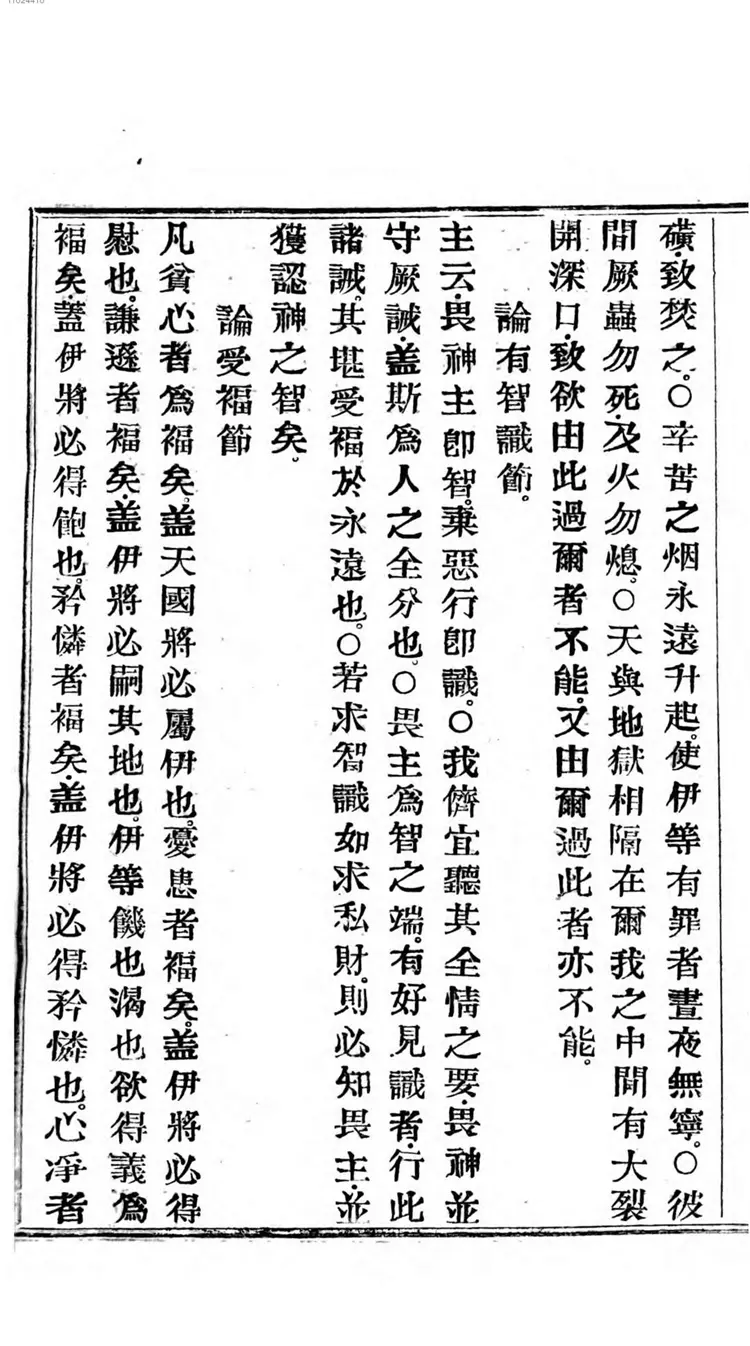 11024410
磺.致焚之.○辛苦之烟永遠升起.使伊等有罪者晝夜無寧.○彼
間厥蟲勿死.及火勿熄.○天與地獄相隔在爾我之中間有大裂
開深口.致欲由此過爾者不能.又由爾過此者亦不能.
論有智識節.
主云.畏神主卽智.棄惡行卽識.○我儕宜聽其全情之要.畏神並
守厥誡.盖斯爲人之全分也.○畏主爲智之端.有好見識者.行此
諸誡.其堪受福於永遠也.○若求智識如求私財.則必知畏主.並
獲認神之智矣.
論受福節
凡貧心者爲福矣.盖天國將必屬伊也.憂患者福矣.盖伊將必得
慰也.謙遜者福矣.盖伊將必嗣其地也.伊等饑也渴也欲得義爲
福矣.蓋伊將必得飽也.矜憐者福矣.盖伊將必得矜憐也.心凈者